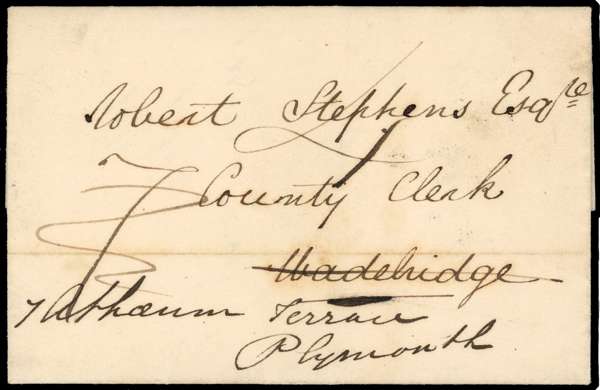 Robert Stephens Esqre
County Clerk
Wadebridge
7 Athæum Terrace
Plymouth